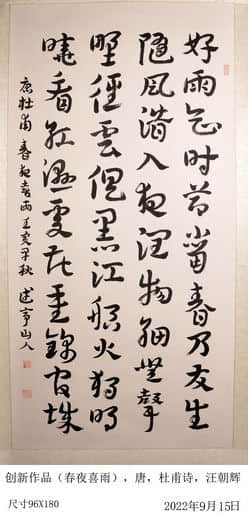 好雨知时节當春乃发生
隨风潜入夜润物細無聲
野徑雲俱黑江船火獨明
曉看紅濕處花重錦官城
唐杜甫春夜喜雨壬寅早秋 山人
创新作品（春夜喜雨），唐，杜甫诗，汪朝辉
尺寸96X180
2022年9月15日